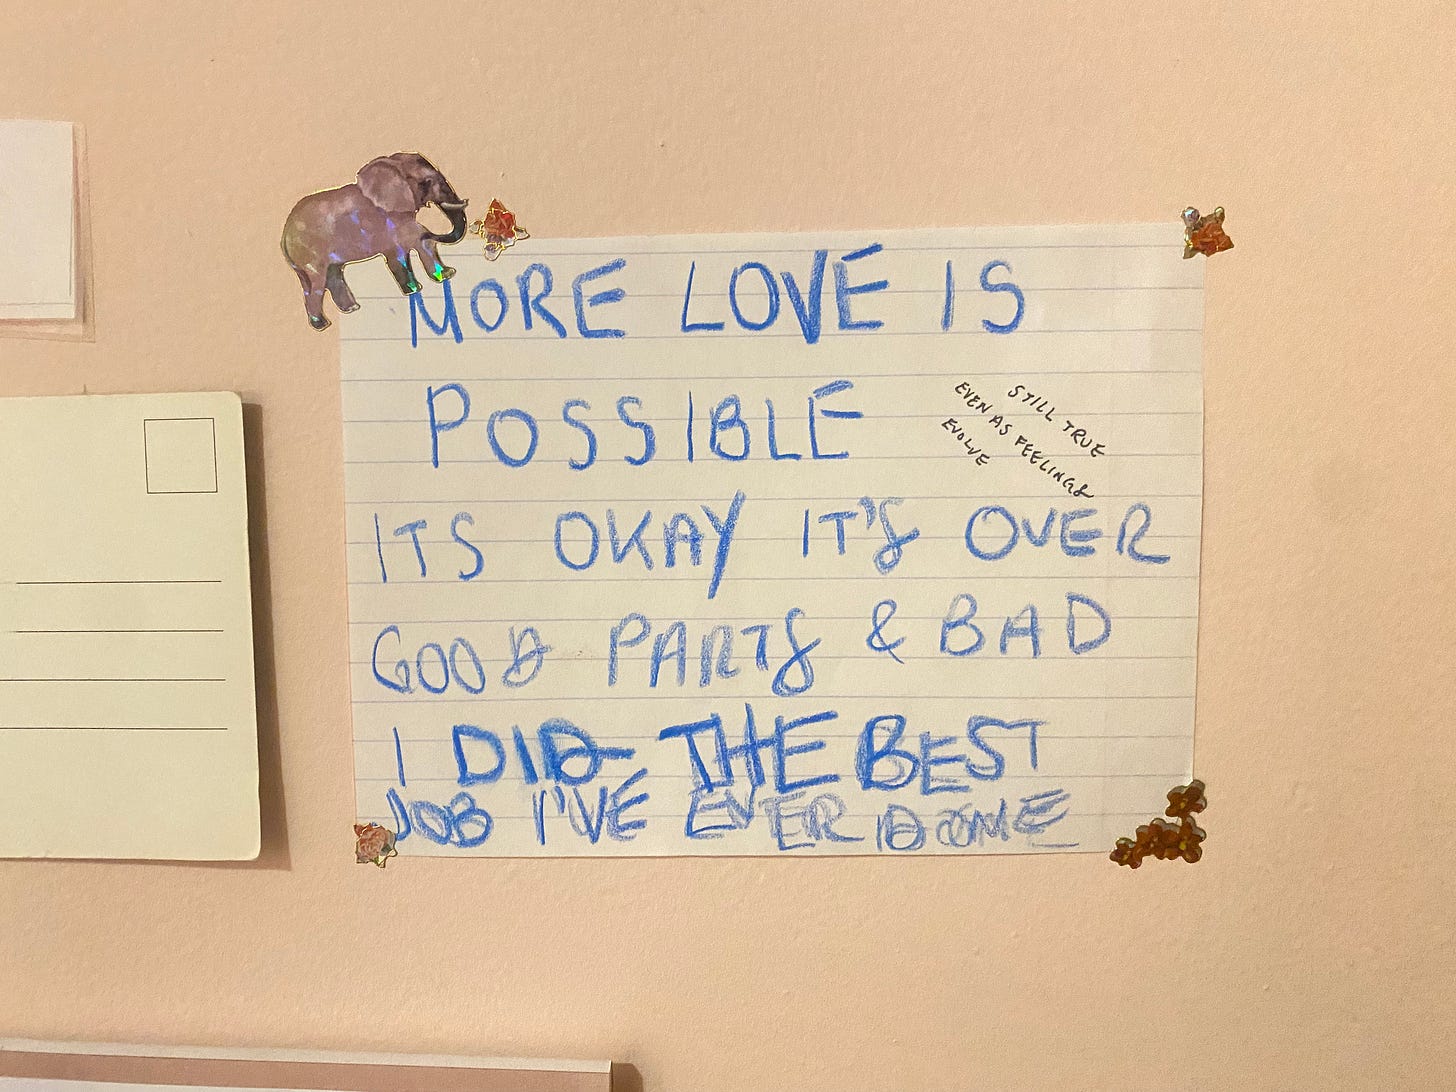 MORE LOVE IS
POSSIBLE
STILL TRUE
EVEN AS FEELINGS
EVOLVE
ITS OKAY IT'S OVER
GOOD PARTS & BAD
I DID THE BEST
JOB I'VE EVER DONE